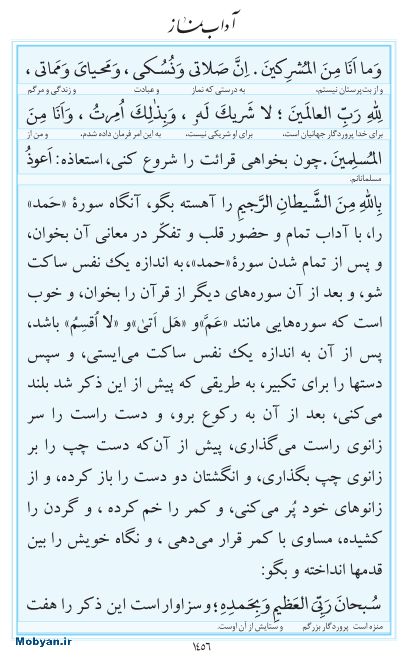 آداب نماز
وَما اَنَا مِنَ المُشرِكينَ. اِنَّ صَلاتى وَنُسُكى ، وَمَحياىَ وَمَماتى ،
و از بت‌پرستان نیستم، به درستی که نماز و عبادت و زندگی و مرگم
لِلهِ رَبِّ العالَمينَ ؛ لا شَريكَ لَهُ ، وَبِذٰلِكَ اُمِرتُ ، وَاَنَا مِنَ
برای خدا پروردگار جهانیان است، برای او شریکی نیست، به این امر فرمان داده شدم، و من از
المُسلِمينَ. چون بخواهی قرائت را شروع کنی، استعاذه: اَعوذُ
مسلمانانم.
بِاللهِ مِنَ الشَّيطانِ الرَّجيمِ را آهسته بگو، آنگاه سورهٔ «حَمد»
را، با آداب تمام و حضور قلب و تفکّر در معانی آن بخوان،
و پس از تمام شدن سورهٔ «حمد»،به اندازه یک نفس ساکت
شو، و بعد از آن سوره‌های دیگر از قرآن را بخوان، و خوب
است که سوره‌هایی مانند «عَمَّ»و «هَل اَتیٰ»و «لا اُقسِمُ» باشد،
پس از آن به اندازه یک نفس ساکت می‌ایستی، و سپس
دستها را برای تکبیر، به طریقی که پیش از این ذکر شد بلند
می‌کنی، بعد از آن به رکوع برو، و دست راست را سر
زانوی راست می‌گذاری، پیش از آن‌که دست چپ را بر
زانوی چپ بگذاری، و انگشتان دو دست را باز کرده، و از
زانوهای خود پُر می‌کنی، و کمر را خم کرده ، و گردن را
کشیده، مساوی با کمر قرار می‌دهی ، و نگاه خویش را بین
قدمها انداخته و بگو:
سُبحانَ رَبِّىَ العَظيمِ وَبِحَمدِهِ؛ و سزاوار است این ذکر را هفت
منزه است پروردگار بزرگم و ستایش از آن اوست.
۱۴۵۶
Mobyan.ir